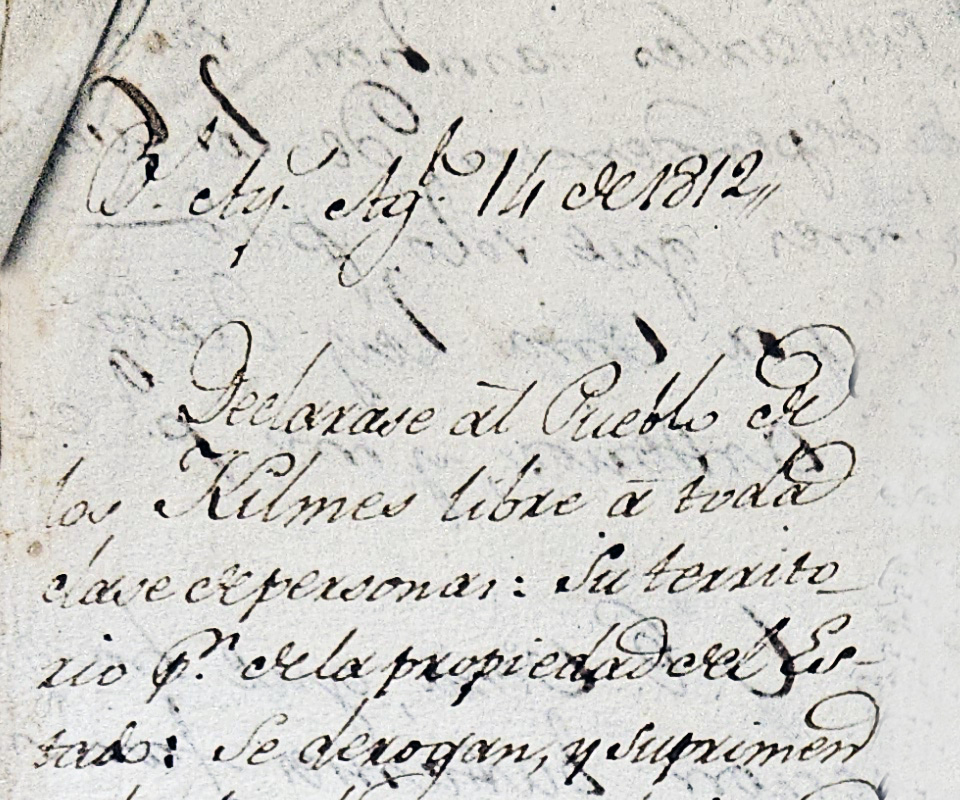 B.ˢ Ay.ˢ Ag.ᵗᵒ 14 de 1812,,
Declarase al Pueblo de
los Kilmes libre à toda
clase de personas: Su territo-
rio p.ʳ de la propiedad del Es-
tado: Se derogan, y suprimen